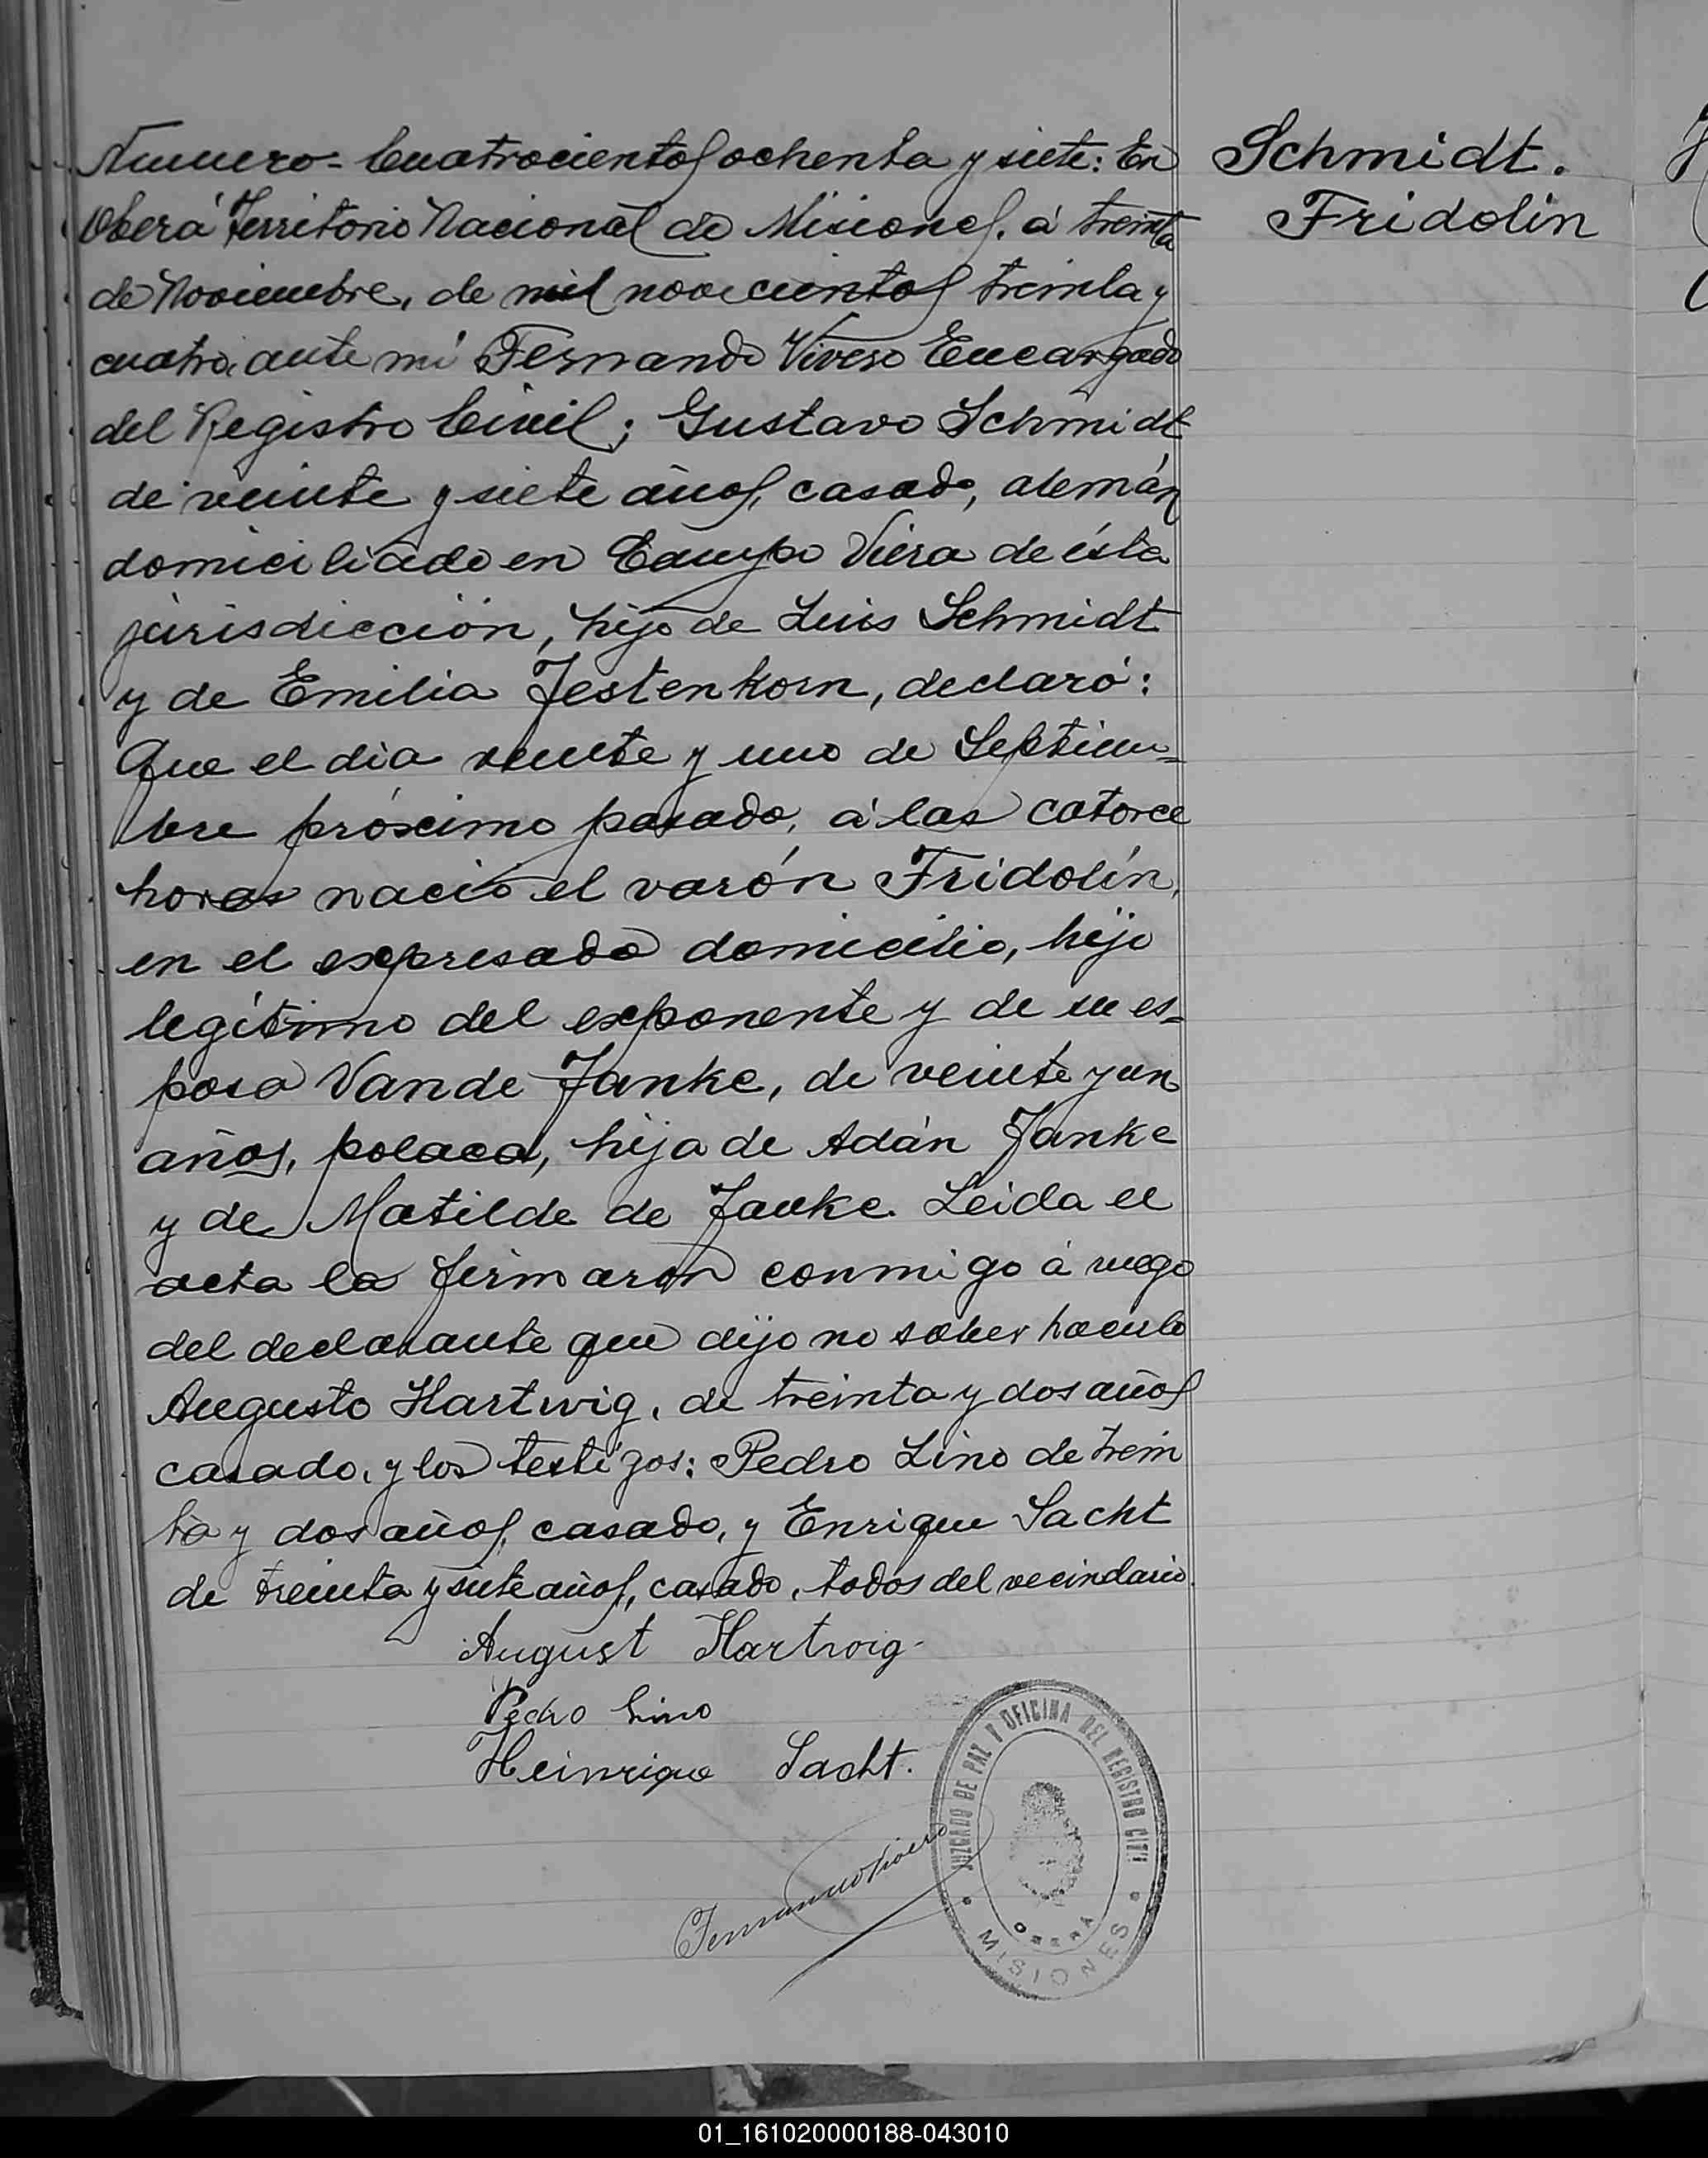 Numero - Cuatrocientos ochenta y siete: En
Oberá Territorio Nacional de Misiones. á treinta
de Noviembre, de mil novecientos treinta y
cuatro, ante mi Fernando Vivero Encargado
del Registro Civil; Gustavo Schmidt
de veinte y siete años, casado, alemán
domiciliado en Campo Viera de ésta
jurisdicción, hijo de Luis Schmidt
y de Emilia Jestenkorn, declaró:
Que el dia veinte y uno de Septiem=
bre próximo pasado, á las catorce
horas nació el varón Fridolín,
en el expresado domicilio, hijo
legítimo del exponente y de su es=
posa Vande Janke, de veinte y un
años, polaca, hija de Adán Janke
y de Matilde de Janke. Leida el
acta la firmaron conmigo á ruego
del declarante que dijo no saber hacerlo
Augusto Hartwig, de treinta y dos años
casado, y los testigos: Pedro Lino de trein
ta y dos años, casado, y Enrique Sacht
de treinta y siete años, casado, todos del vecindario.
August Hartwig-
Pedro Lino
Heinrique Sacht.
Fernando Vivero
JUZGADO DE PAZ Y OFICINA DEL REGISTRO CIVIL
OBERA
MISIONES
Schmidt.
Fridolín
01_161020000188-043010